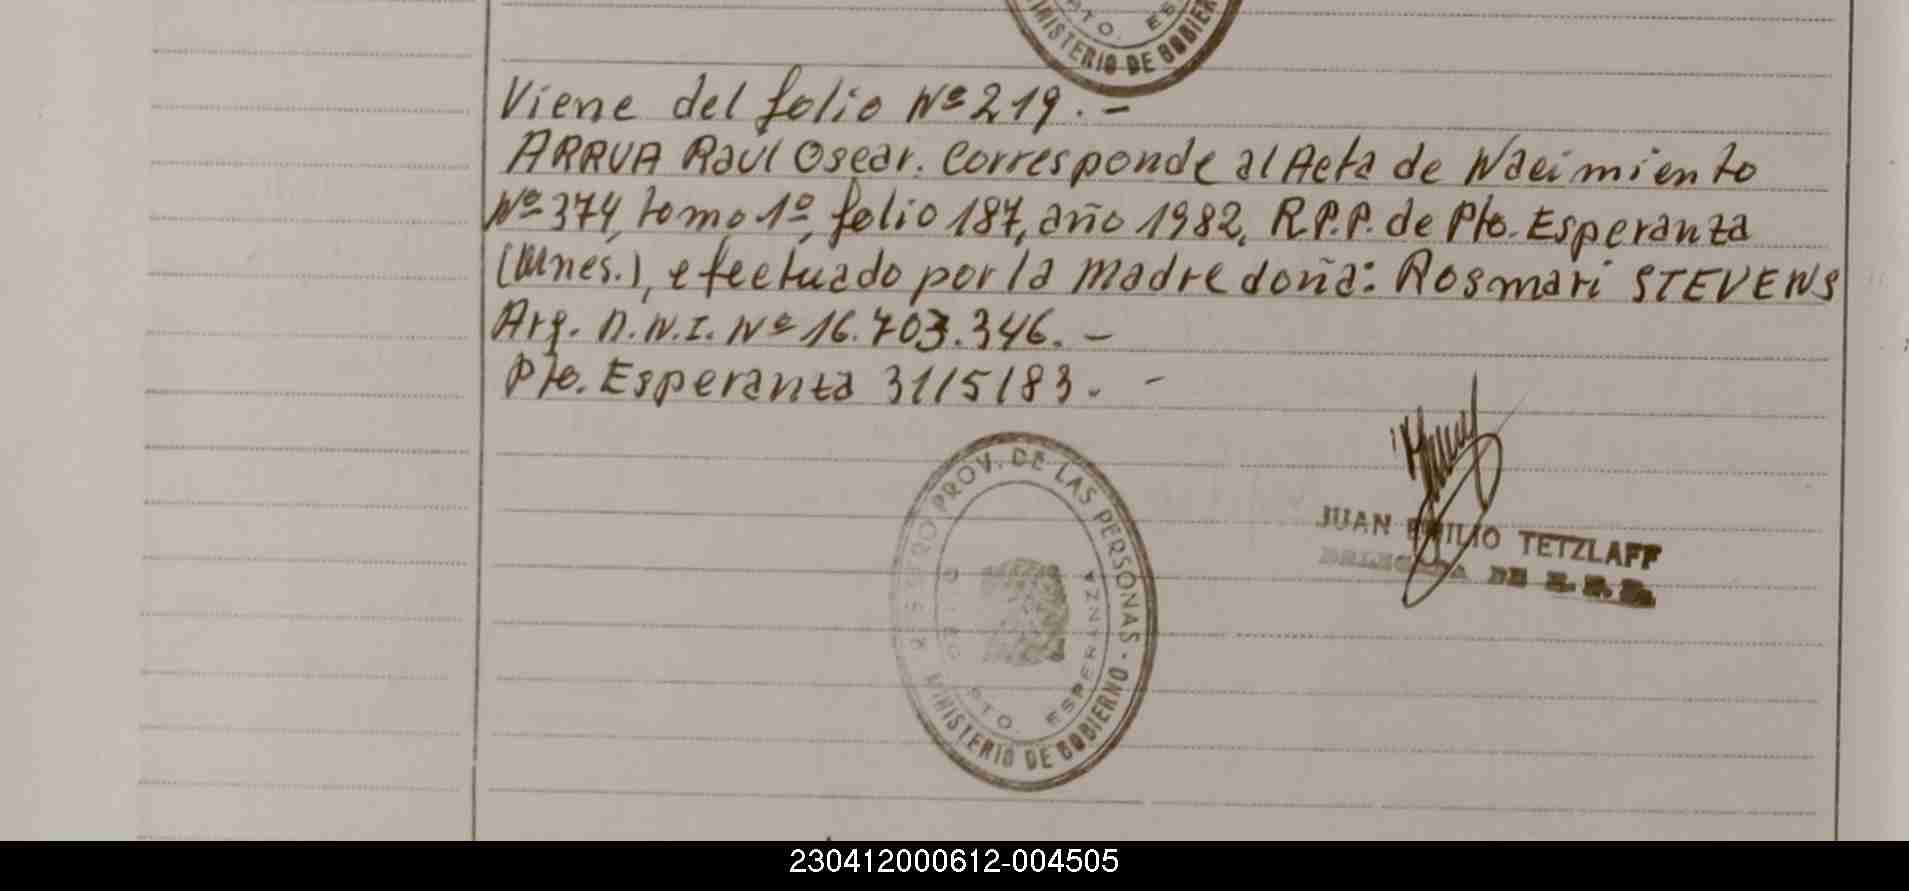 MINISTERIO DE GOBIERN
PTO. ES
Viene del folio Nº 219. -
ARRUA Raul Oscar. Corresponde al Acta de Nacimiento
Nº 374, tomo 1º, folio 187, año 1982, R.P.P. de Pto. Esperanza
(Mnes.), efectuado por la madre doña: Rosmari STEVENS
Arg. D.N.I. Nº 16.703.346. -
Pto. Esperanza 31/5/83. -
REGISTRO PROV. DE LAS PERSONAS.
MINISTERIO DE GOBIERNO
PTO. ESPERANZA
JUAN EMILIO TETZLAFF
DE R.P.P.
230412000612-004505